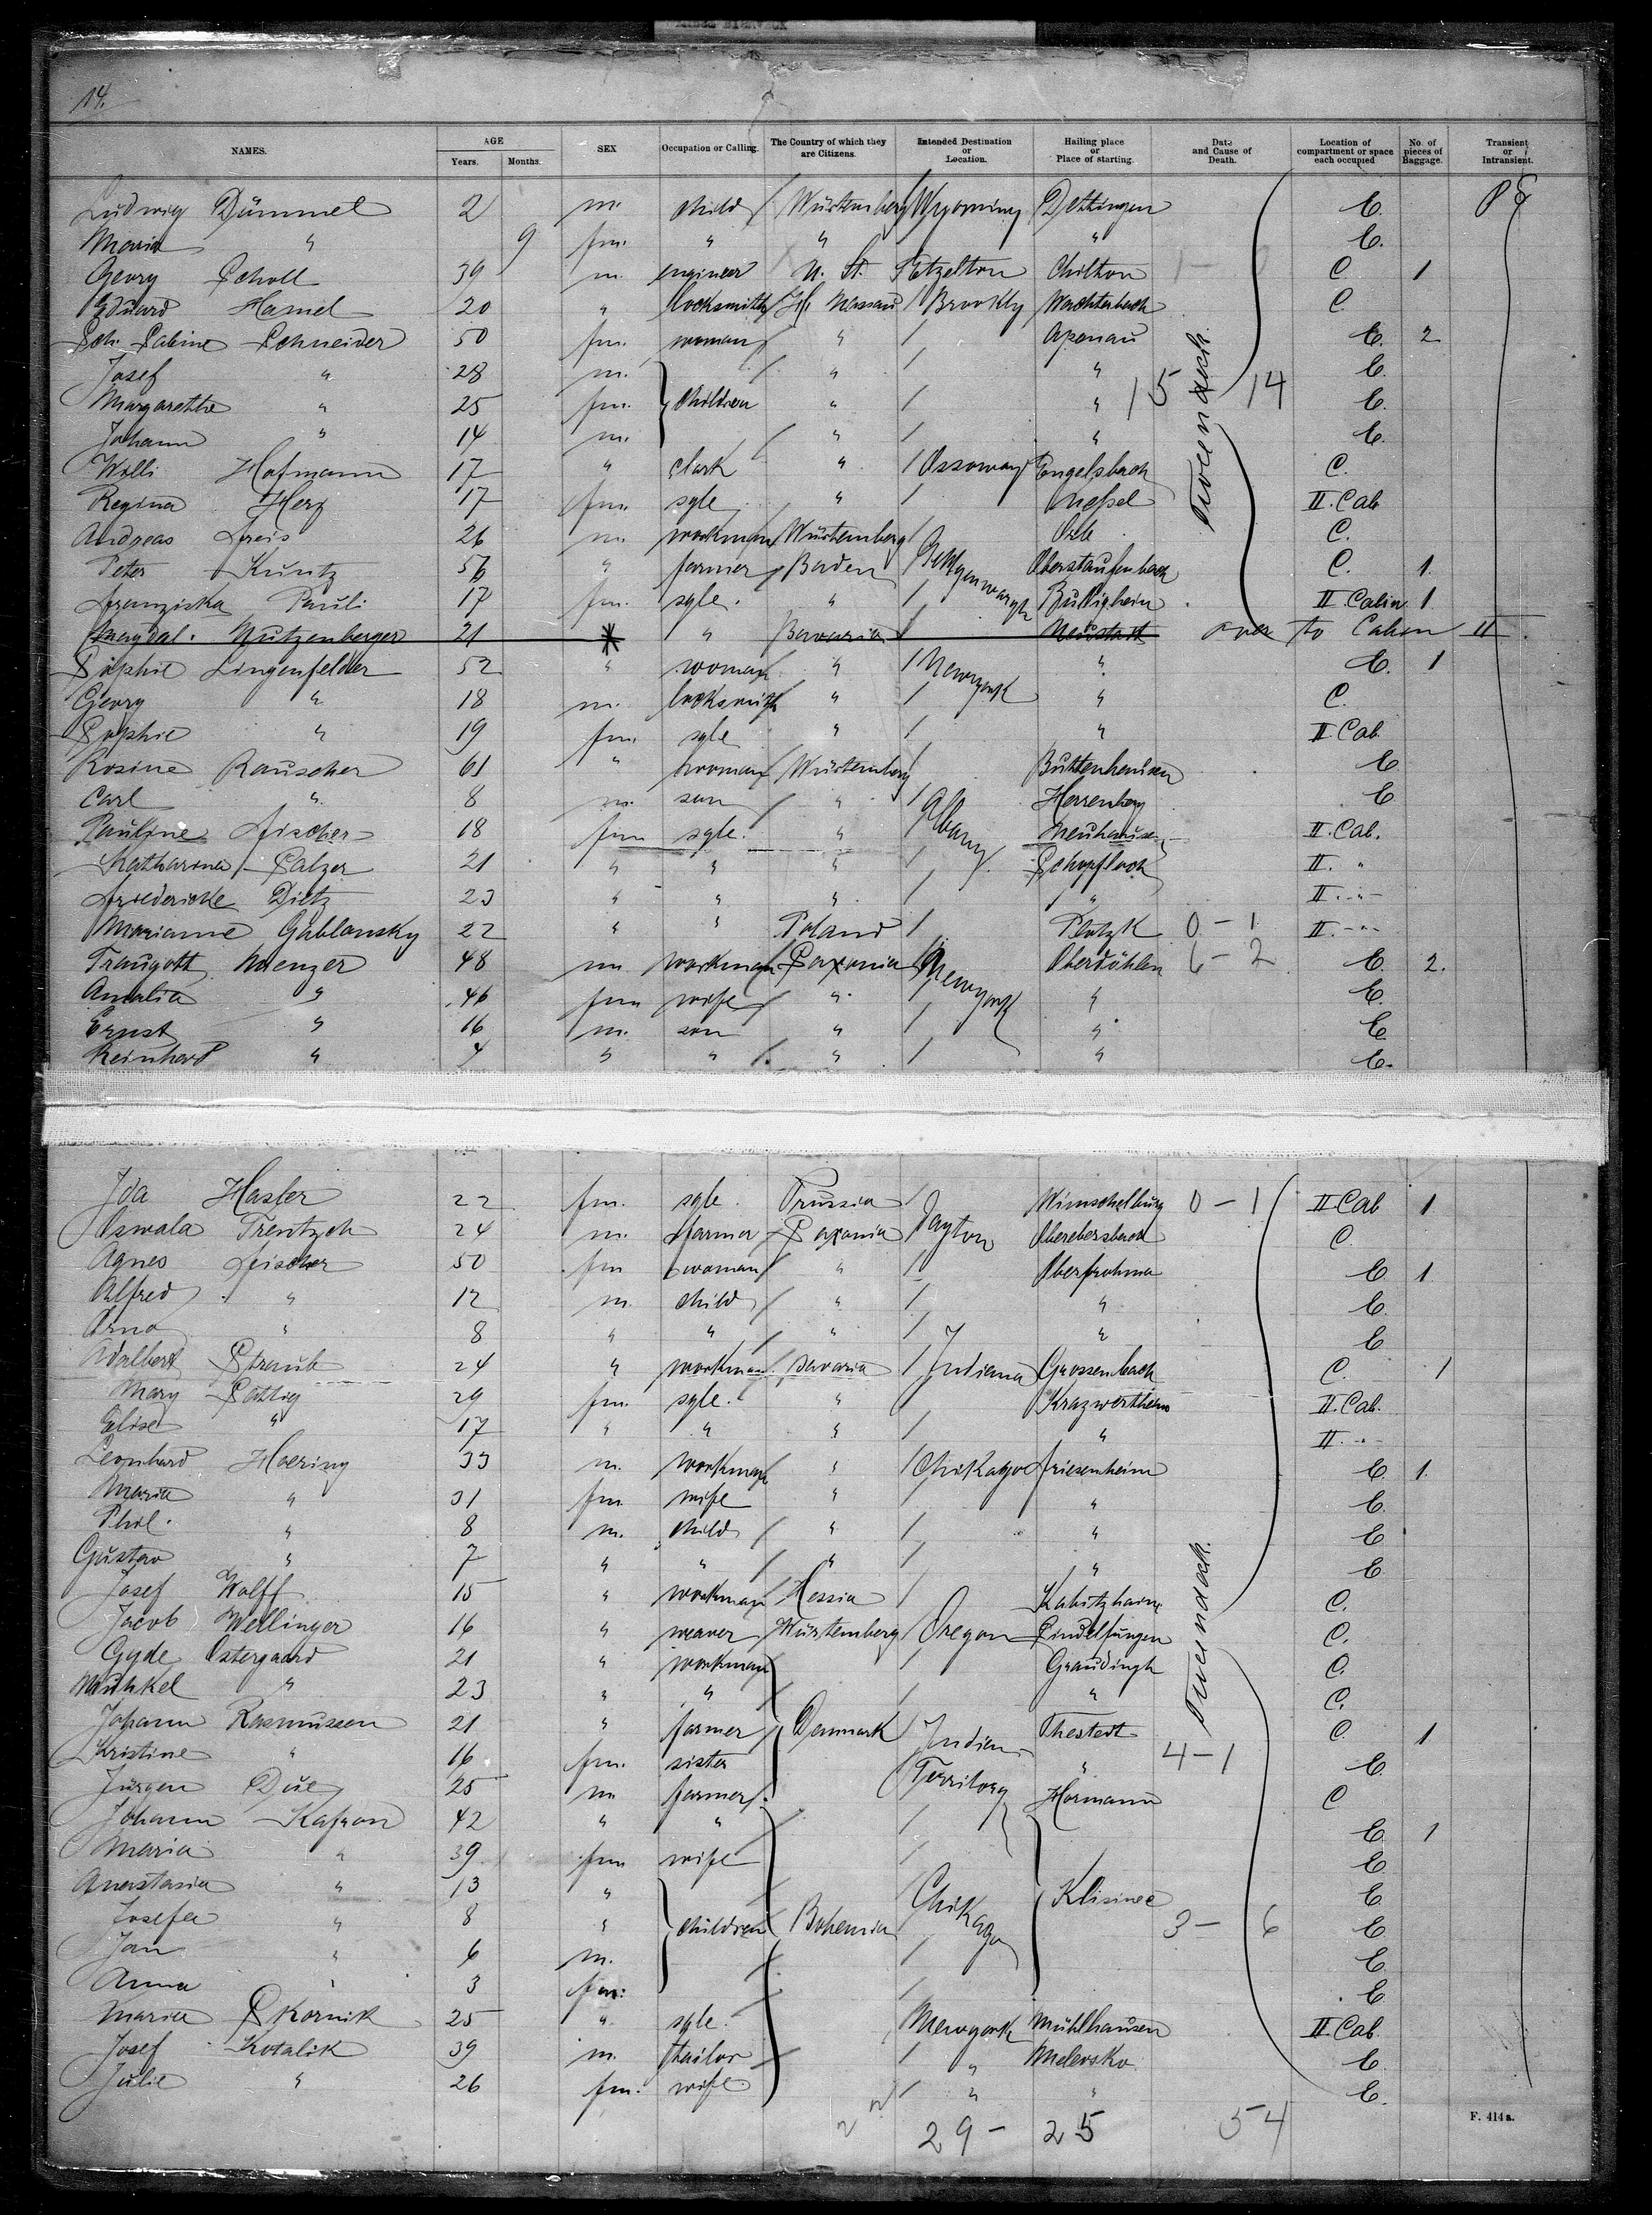 14.
NAMES. AGE Years. Months. SEX Occupation or Calling. The Country of which they are Citizens. Intended Destination or Location. Hailing place or Place of starting. Date and Cause of Death. Location of compartment or space each occupied No. of pieces of Baggage. Transient or Intransient.
Ludwig Dümmel 2 m. child Würtemberg Wyoming Dettingen C.
Maria " 9 fm. " " / " C.
Georg Scholl 39 m. engineer U. St. Chilton C 1
Eduard Hamel 20 " locksmith H. Nassau / Brookly Wachtenbach C.
Sabine Schneider 50 fm. woman " / Apenau C. 2
Josef " 28 m. " / " C.
Margarethe " 25 fm. children " / " 15 14 C.
Johann " 14 m. " / " C.
Willi Hofmann 17 " clark " / Ossoway Engelsbach C.
Regina Herz 17 fm. sgle " / II. Cab
Andreas Freis 26 m. workman Würtemberg / Orb C.
Peter Kuntz 56 " farmer Baden / Oberstaufenbach C. 1
Franziska Pauli 17 fm. sgle. " / Bulligheim II Cabin 1
Magdal. Nutzenberger 21 " Bavaria / Neustadt over to Cabin II
Sophie Lingenfelder 52 " woman " / Newyork " C. 1
Georg " 18 m. locksmith " / " C.
Sophie " 19 fm. sgle " / " II Cab
Rosine Rauscher 61 " woman Würtemberg / Buttenhausen C
Carl " 8 m. son " / Albany Herrenberg C
Pauline Fischer 18 fm sgle. " Neuhausen II. Cab.
Katharina Salzer 21 " " " / Schopfloch II. "
Friedericke Dietz 23 " " " / " II. "
Marianne Gablansky 22 " " Poland / Plotzk 0 - 1 II. "
Traugott Menzer 48 m workman Saxonia / Newyork Oberdöhlen 6 - 2 C. 2.
Amalia " 46 fm wife " / " C.
Ernst " 16 m. son " / " C
Reinhard " 4 " " " / " C.
Ida Hasler 22 fm. sgle Prussia / Wünschelburg 0 - 1 II Cab 1
Oswald Trentzsch 24 m. farmer Saxonia Dayton Oberebersbach C.
Agnes Fischer 50 fm woman " / Oberfrohna C 1
Alfred " 12 m. child " / " C.
Arno " 8 " " " / " C
Adalbert Straub 24 " workman Bavaria / Indiana Grossenbach C. 1
Mary Sattig 29 fm. sgle. " / Krazwertheim II. Cab.
Elise " 17 " " " / " II. "
Leonhard Hoering 33 m. workman " / Chikago Friesenheim C 1.
Maria " 31 fm. wife " / " C.
Phil. " 8 m. child " / " C
Gustav " 7 " " " / " C
Josef Wolff 15 " workman Hessia / C.
Jacob Wellinger 16 " weaver Würtemberg / Oregon Sindelfingen C.
Gyde Ostergaard 21 " workman / C.
" 23 " " / " C.
Johann Rasmussen 21 " farmer Denmark / Indian Territory Thestedt C 1
Kristine " 16 fm. sister " 4 - 1 C.
Jürgen Due 25 m farmer Hormann C
Johann Kafron 42 " " / C 1
Maria " 39 fm wife / C
Anastasia " 13 " Klisinee C
Josefa " 8 " children Bohemia Chikago 3 - 6 C
Jan " 6 m. / C
Anna " 3 fm. / C
Maria Skornik 25 " sgle. Newyork Mühlhausen II. Cab.
Josef Kotalik 39 m. tailor / " Melevsko C.
Julie " 26 fm. wife / " " C.
29 - 25 54
F. 414a.